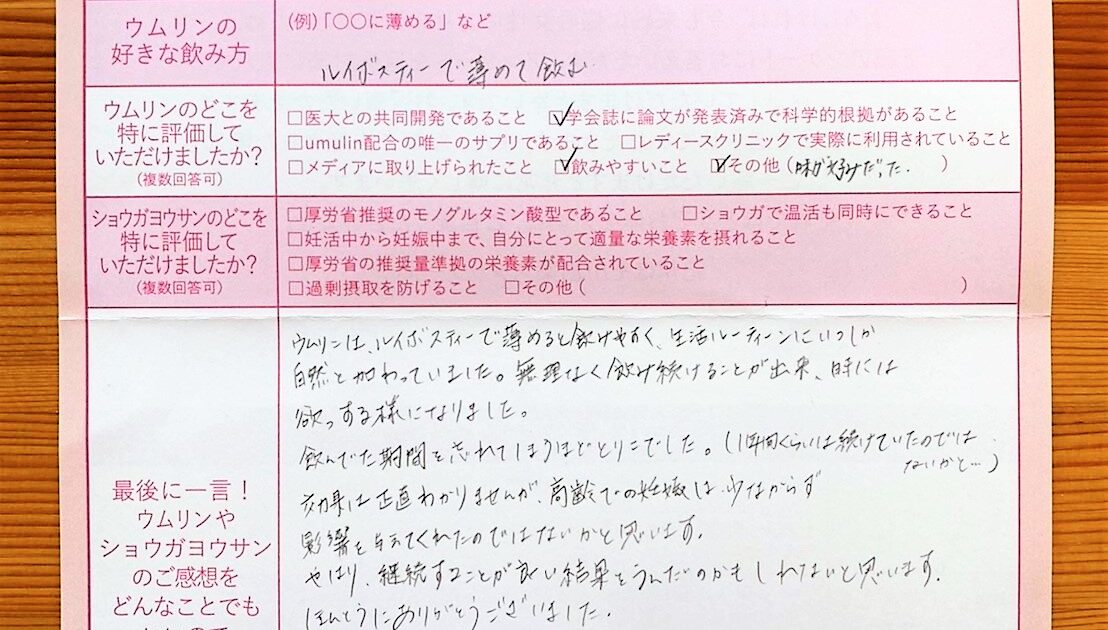 ウムリンの
好きな飲み方
(例)「〇〇に薄める」など
ルイボスティーで薄めて飲む
ウムリンのどこを
特に評価して
いただけましたか?
(複数回答可)
□医大との共同開発であること ☑学会誌に論文が発表済みで科学的根拠があること
□umulin配合の唯一のサプリであること □レディースクリニックで実際に利用されていること
□メディアに取り上げられたこと ☑飲みやすいこと ☑その他(味が好みだった。)
ショウガヨウサンのどこを
特に評価して
いただけましたか?
(複数回答可)
□厚労省推奨のモノグルタミン酸型であること □ショウガで温活も同時にできること
□妊活中から妊娠中まで、自分にとって適量な栄養素を摂れること
□厚労省の推奨量準拠の栄養素が配合されていること
□過剰摂取を防げること □その他( )
最後に一言!
ウムリンや
ショウガヨウサン
のご感想を
どんなことでも
ウムリンは、ルイボスティーで薄めると飲みやすく、生活ルーティーンにいつしか
自然と加わっていました。無理なく飲み続けることが出来、時には
欲っする様になりました。
飲んでた期間を忘れてしまうほどとりこでした。(1年間くらいは続けていたのでは
ないかと…)
効果は正直わかりませんが、高齢での妊娠は少なからず
影響を与えてくれたのではないかと思います。
やはり、継続することが良い結果をうんだのかもしれないと思います。
ほんとうにありがとうございました。